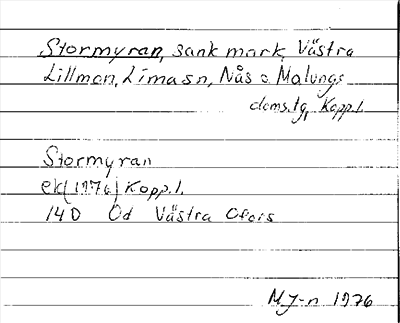 Stormyran, sank mark, Västra
Lillmon, Lima sn, Nås o. Malungs
doms.tg, Kopp.l.
Stormyran
ek (1976) Kopp.l.
14D Od Västra Ofors
MJ-n 1976